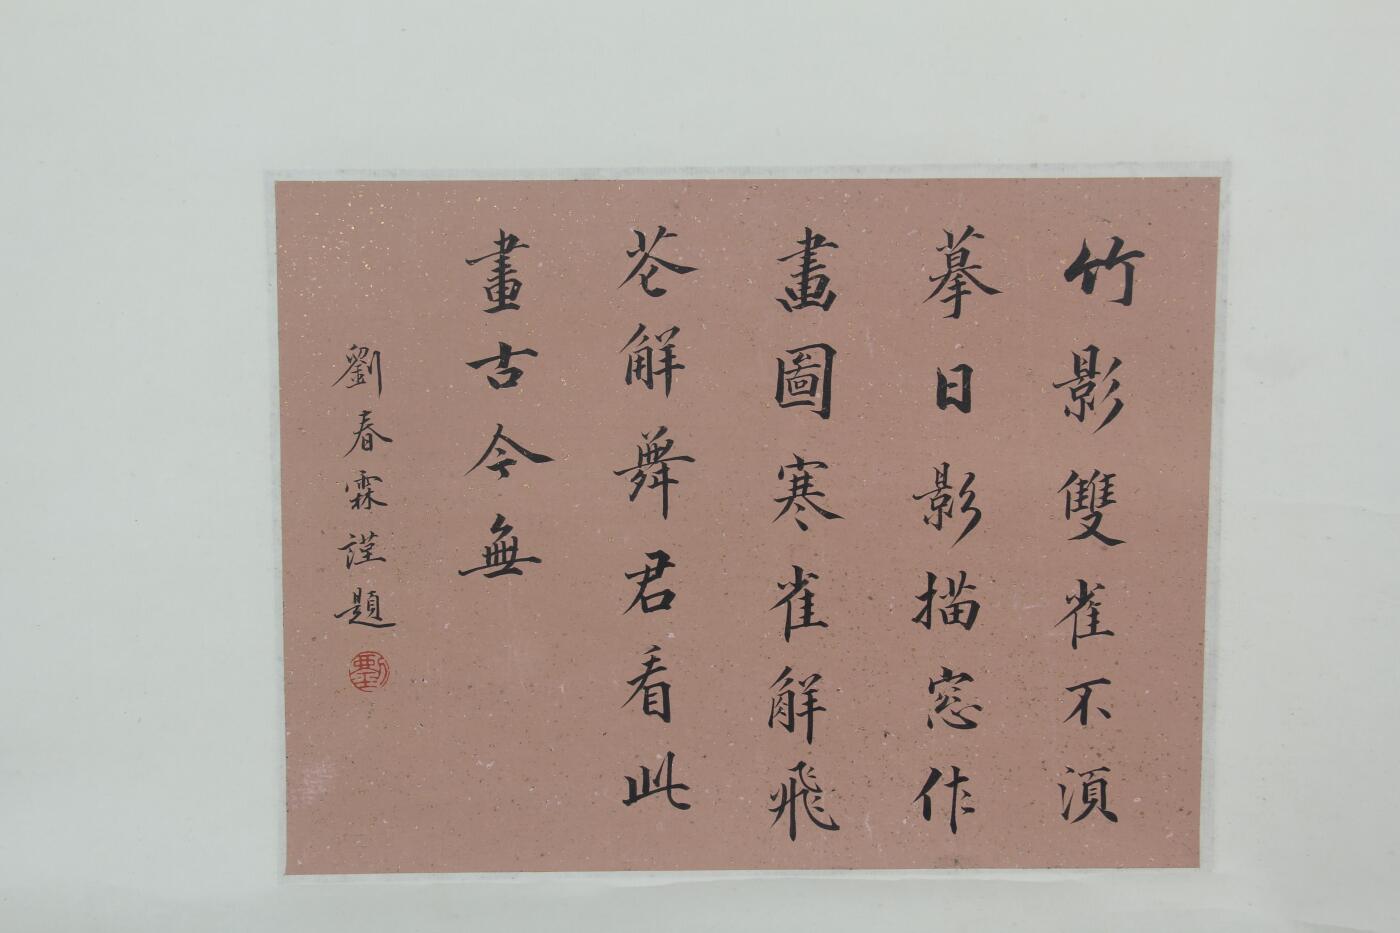 竹影雙雀不湏
摹日影描窓作
畫圖寒雀觧飛
花觧舞君看此
畫古今無
劉春霖謹題